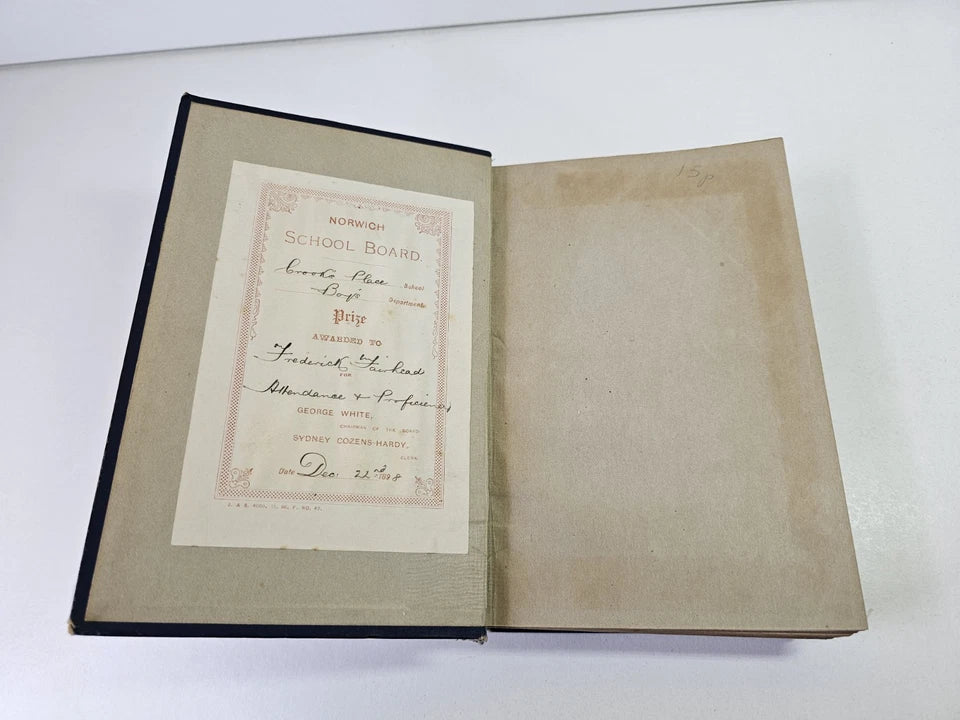 NORWICH
SCHOOL BOARD.
Crooks Place School
Boys Department
Prize
AWARDED TO
Frederick Fairhead
FOR
Attendance & Proficiency
GEORGE WHITE,
CHAIRMAN OF THE BOARD
SYDNEY COZENS-HARDY,
CLERK
Date Dec: 22nd 1898
15p